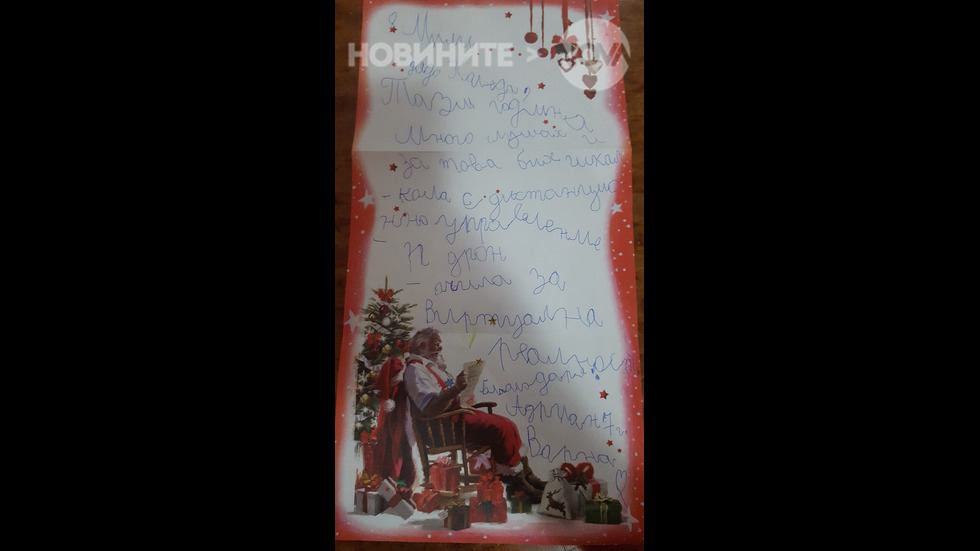 НОВИНИТЕ > NOVA
Мили
дядо Коледа,
Тази година
много слушах и
за това бих искал
- кола с дистанцио
нно управление
- РС дрон
- очила за
виртуална
реалност
благодаря!
Адриан 7г.
Варна